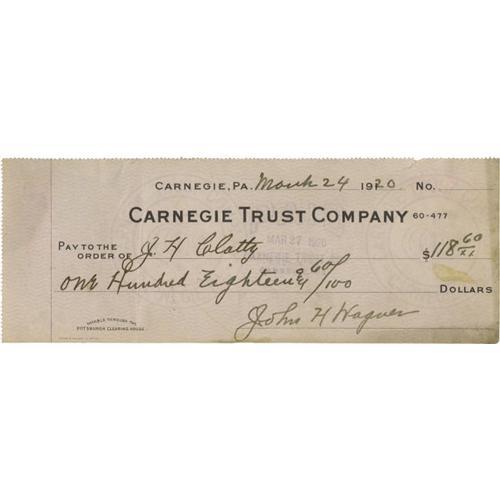 CARNEGIE, PA. March 24 1920 No.
CARNEGIE TRUST COMPANY 60-477
PAY TO THE ORDER OF J. H Clatty $118 60/xx
One Hundred Eighteen & 60/100 DOLLARS
John H Wagner
PAYABLE THROUGH THE
PITTSBURGH CLEARING HOUSE